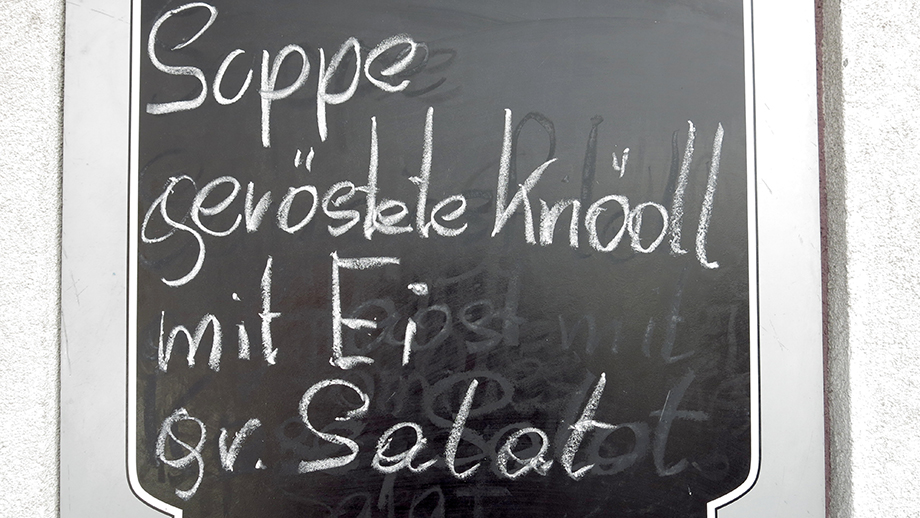 Suppe
geröstete Knöoll
mit Ei
gr. Salat